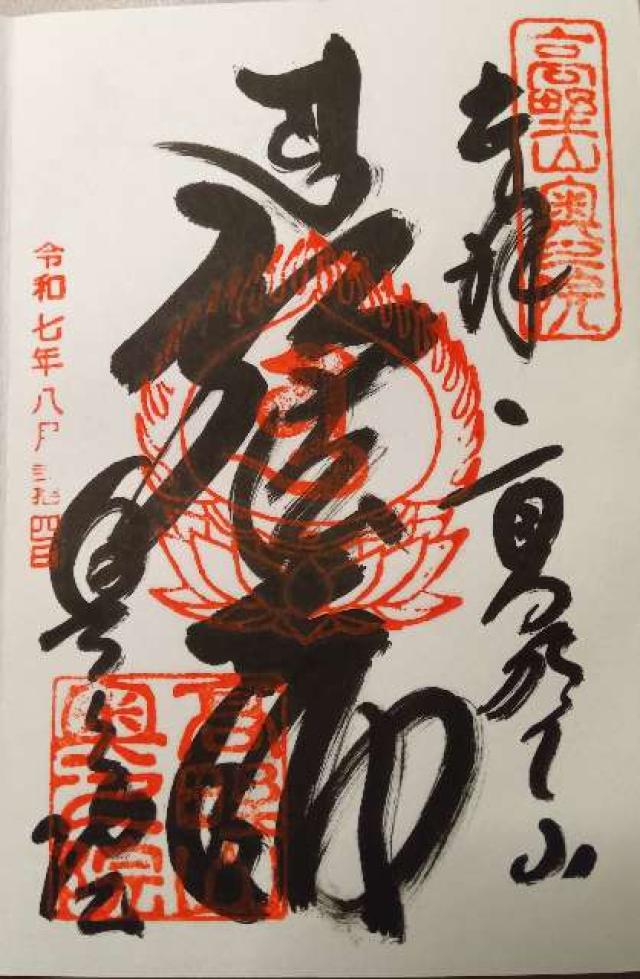 高野山奥之院
奉拝
高野山
弘法大師
奥之院
高野山奥之院
令和七年八月弐拾四日